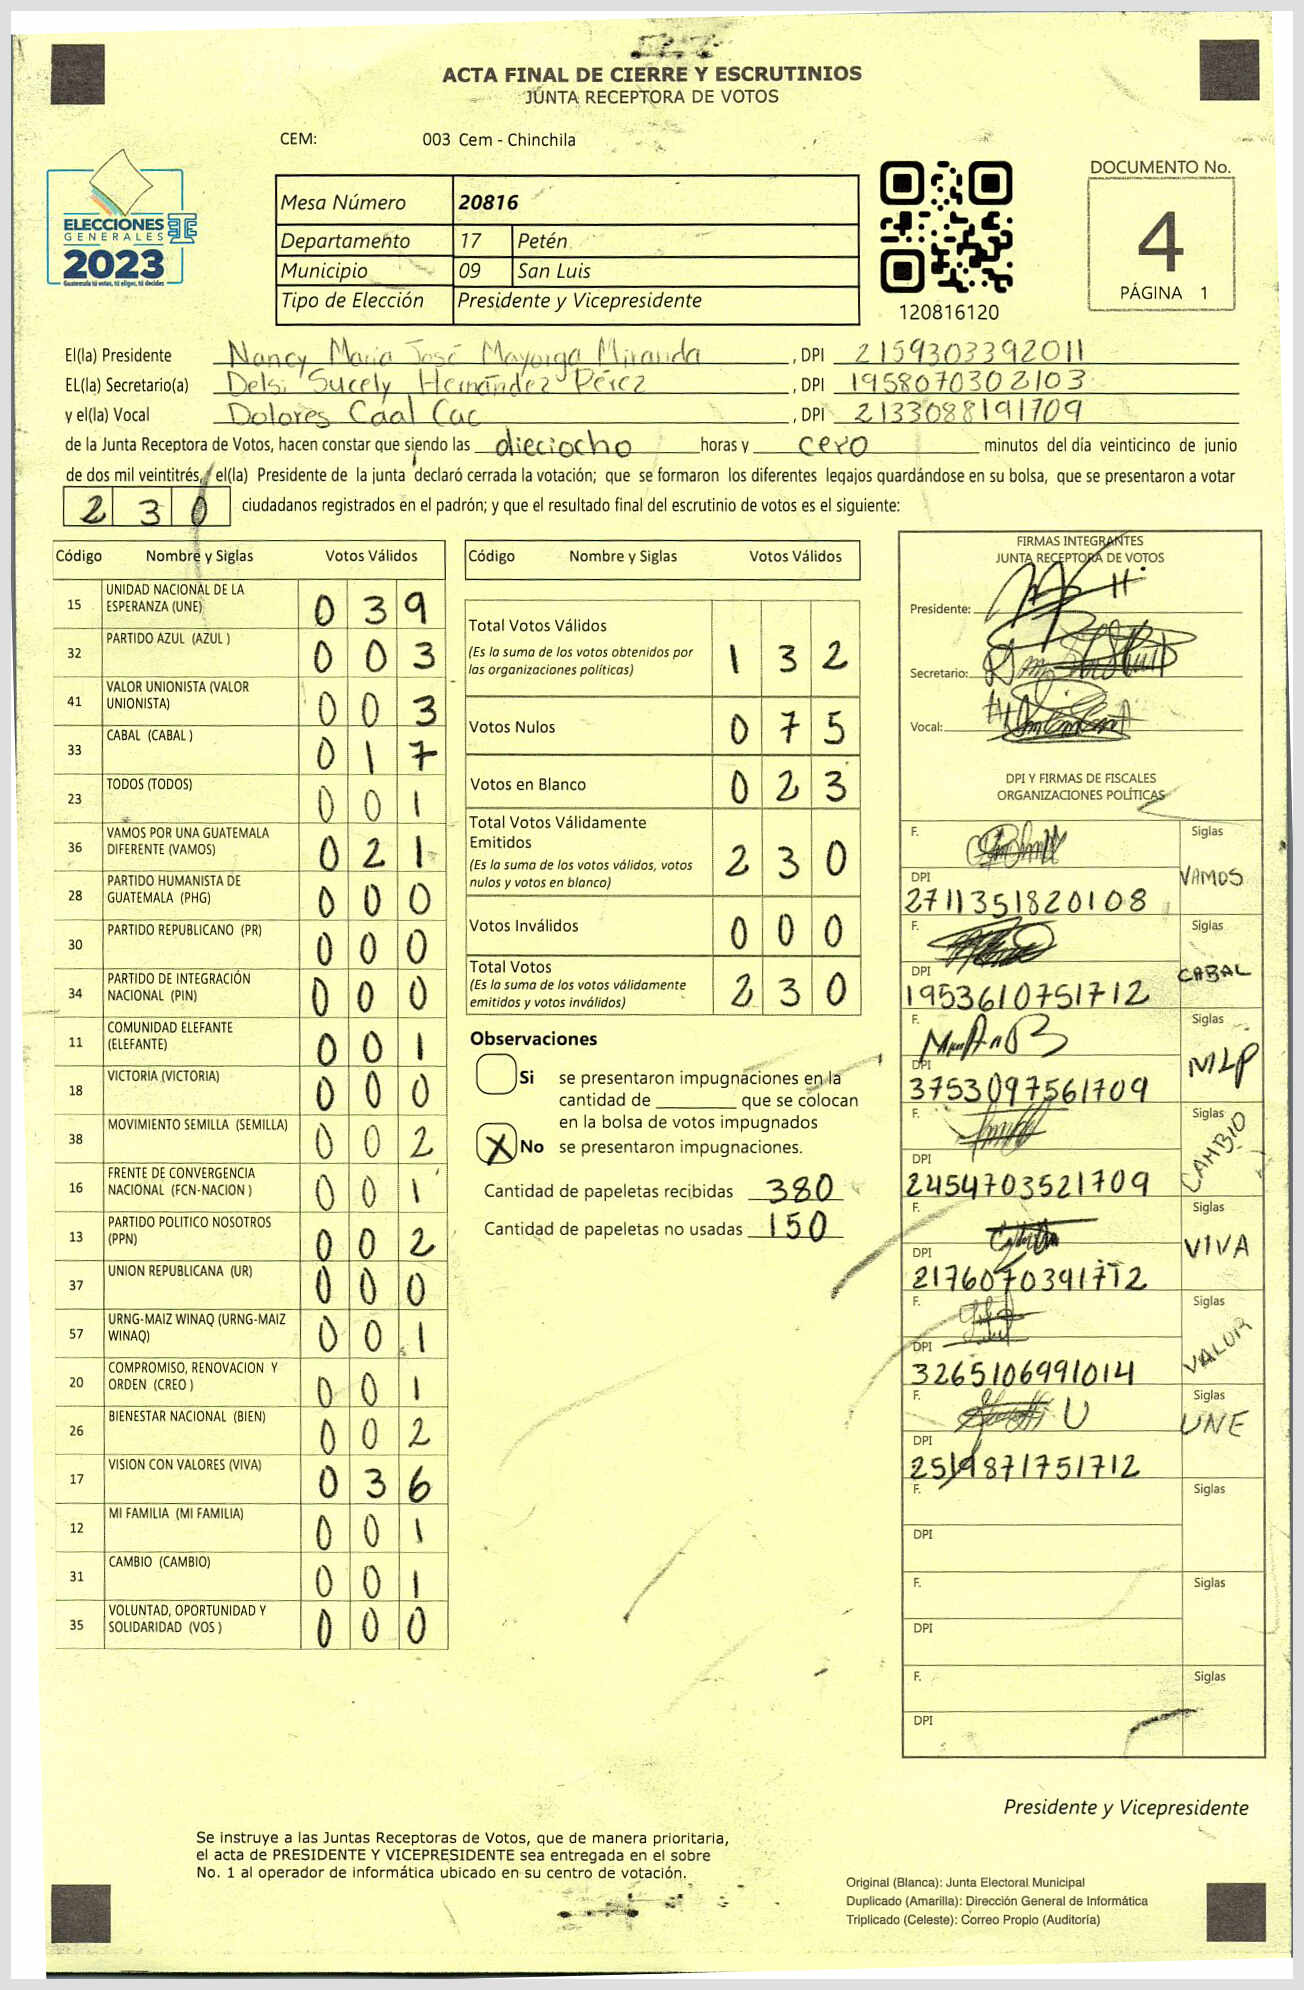 ACTA FINAL DE CIERRE Y ESCRUTINIOS
JUNTA RECEPTORA DE VOTOS
CEM: 003 Cem - Chinchila
DOCUMENTO No.
4
PÁGINA 1
ELECCIONES
GENERALES
2023
Guatemala tú votas, tú eliges, tú decides
Mesa Número 20816
Departamento 17 Petén
Municipio 09 San Luis
Tipo de Elección Presidente y Vicepresidente
120816120
El(la) Presidente Nancy María José Mayorga Miranda, DPI 2159303392011
EL(la) Secretario(a) Delsi Sucely Hernández Pérez, DPI 1958070302103
y el(la) Vocal Dolores Caal Cuc, DPI 2133088191709
de la Junta Receptora de Votos, hacen constar que siendo las dieciocho horas y cero minutos del día veinticinco de junio
de dos mil veintitrés, el(la) Presidente de la junta declaró cerrada la votación; que se formaron los diferentes legajos guardándose en su bolsa, que se presentaron a votar
230 ciudadanos registrados en el padrón; y que el resultado final del escrutinio de votos es el siguiente:
Código Nombre y Siglas Votos Válidos
15 UNIDAD NACIONAL DE LA ESPERANZA (UNE) 039
32 PARTIDO AZUL (AZUL ) 003
41 VALOR UNIONISTA (VALOR UNIONISTA) 003
33 CABAL (CABAL ) 017
23 TODOS (TODOS) 001
36 VAMOS POR UNA GUATEMALA DIFERENTE (VAMOS) 021
28 PARTIDO HUMANISTA DE GUATEMALA (PHG) 000
30 PARTIDO REPUBLICANO (PR) 000
34 PARTIDO DE INTEGRACIÓN NACIONAL (PIN) 000
11 COMUNIDAD ELEFANTE (ELEFANTE) 001
18 VICTORIA (VICTORIA) 000
38 MOVIMIENTO SEMILLA (SEMILLA) 002
16 FRENTE DE CONVERGENCIA NACIONAL (FCN-NACION ) 001
13 PARTIDO POLITICO NOSOTROS (PPN) 002
37 UNION REPUBLICANA (UR) 000
57 URNG-MAIZ WINAQ (URNG-MAIZ WINAQ) 001
20 COMPROMISO, RENOVACION Y ORDEN (CREO ) 001
26 BIENESTAR NACIONAL (BIEN) 002
17 VISION CON VALORES (VIVA) 036
12 MI FAMILIA (MI FAMILIA) 001
31 CAMBIO (CAMBIO) 001
35 VOLUNTAD, OPORTUNIDAD Y SOLIDARIDAD (VOS ) 000
Código Nombre y Siglas Votos Válidos
Total Votos Válidos 132
(Es la suma de los votos obtenidos por
las organizaciones políticas)
Votos Nulos 075
Votos en Blanco 023
Total Votos Válidamente
Emitidos 230
(Es la suma de los votos válidos, votos
nulos y votos en blanco)
Votos Inválidos 000
Total Votos 230
(Es la suma de los votos válidamente
emitidos y votos inválidos)
Observaciones
Si se presentaron impugnaciones en la
cantidad de ________ que se colocan
en la bolsa de votos impugnados
X No se presentaron impugnaciones.
Cantidad de papeletas recibidas 380
Cantidad de papeletas no usadas 150
FIRMAS INTEGRANTES
JUNTA RECEPTORA DE VOTOS
Presidente:
Secretario:
Vocal:
DPI Y FIRMAS DE FISCALES
ORGANIZACIONES POLÍTICAS
F. Siglas
VAMOS
DPI
2711351820108
F. Siglas
CABAL
DPI
1953610751712
F. Siglas
MLP
DPI
3753097561709
F. Siglas
CAMBIO
DPI
2454703521709
F. Siglas
VIVA
DPI
2176070391712
F. Siglas
VALOR
DPI
3265106991014
F. Siglas
UNE
DPI
2519871751712
F. Siglas
DPI
F. Siglas
DPI
F. Siglas
DPI
Presidente y Vicepresidente
Se instruye a las Juntas Receptoras de Votos, que de manera prioritaria,
el acta de PRESIDENTE Y VICEPRESIDENTE sea entregada en el sobre
No. 1 al operador de informática ubicado en su centro de votación.
Original (Blanca): Junta Electoral Municipal
Duplicado (Amarilla): Dirección General de Informática
Triplicado (Celeste): Correo Propio (Auditoría)